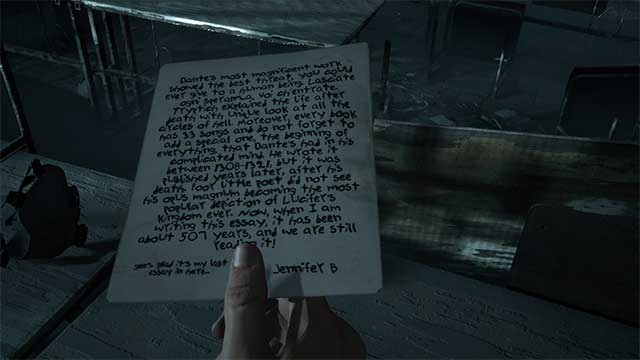 Dantes most magnificent work
showed the best threat, you could
ever give to a human being. Lasciate
ogni speranza, voi ch'entrate.
Tryption explained the life after
death with unique look at all the
circles of hell. Moreover, every book
has 33 songs and do not forget to
add a special one, the beginning of
everything that Dantes had in his
complicated mind. He wrote it
between 1308-1321, but it was
published years later, after his
death. Poor little poet did not see
his opus magnum becoming the most
popular depiction of Lucifer's
kingdom ever. Now, when I am
writing this essay, it has been
about 507 years, and we are still
reading it!
my last
essay in here...
Jennifer B